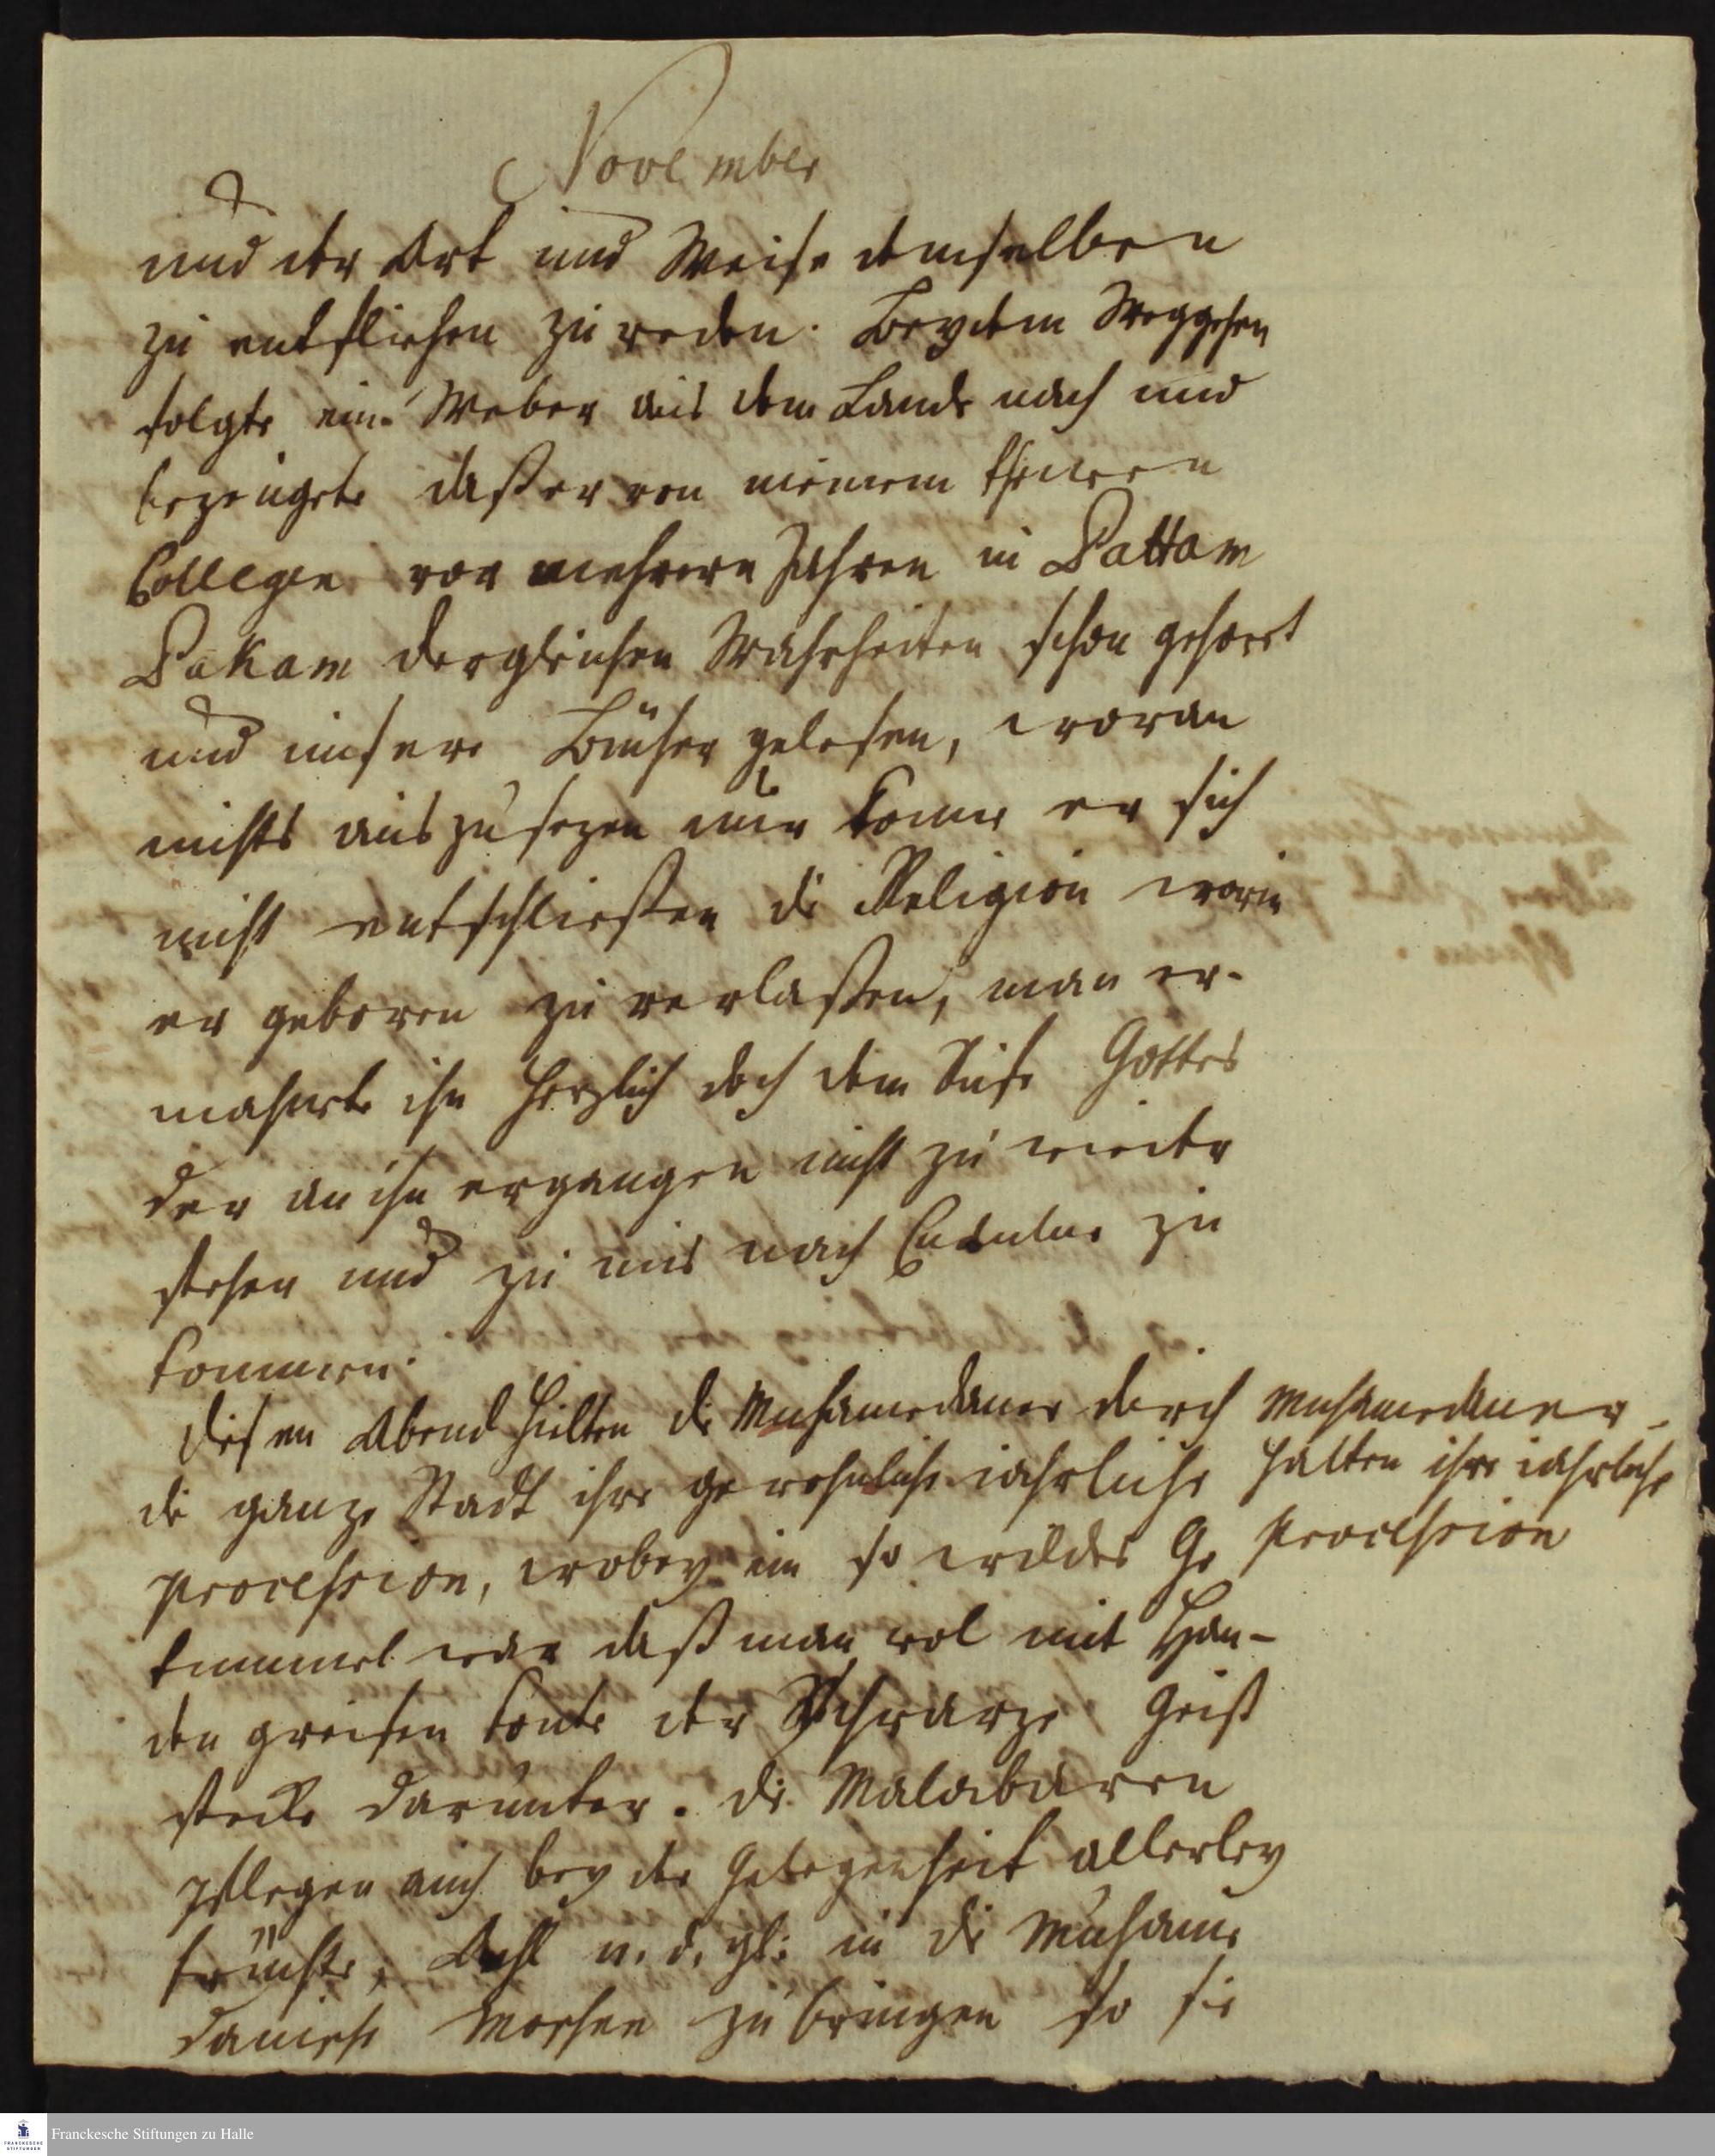 November
und der Art und Weise demselben
zu entfliehen zu reden. Beydem Weggehen
folgte ein Weber aus dem Lande nach und
bezeugete daß er von meinem theuren
Collegen vor mehrern Jahren in Pattam
Pakam dergleichen Wahrheiten schon gehoert
und unsere Bücher gelesen, woran
nichts auszusezen nur könne er sich
nicht entschließen die Religion worin
er geboren zu verlaßen, man er-
mahnete ihn herzlich doch dem Rufe Gottes
der an ihn ergangen nicht zu wieder
stehen und zu uns nach Cudulur zu
kommen.
Diesen Abend hielten die Muhamedaner durch
die ganze Stadt ihre gewohnliche iahrliche
procession, wobey ein so wildes Ge
tummel war daß man wol mit Han-
den greifen konte der Schwarze Geist
stecke darunter. die Malabaren
pflegen auch bey der Gelegenheit allerley
früchte, Oehl u. d. gl: in die Muhame
danische Moscheen zu bringen so sie
Muhamedaner
halten ihre iahrliche
procession
Franckesche Stiftungen zu Halle
FRANCKESCHE
STIFTUNGEN